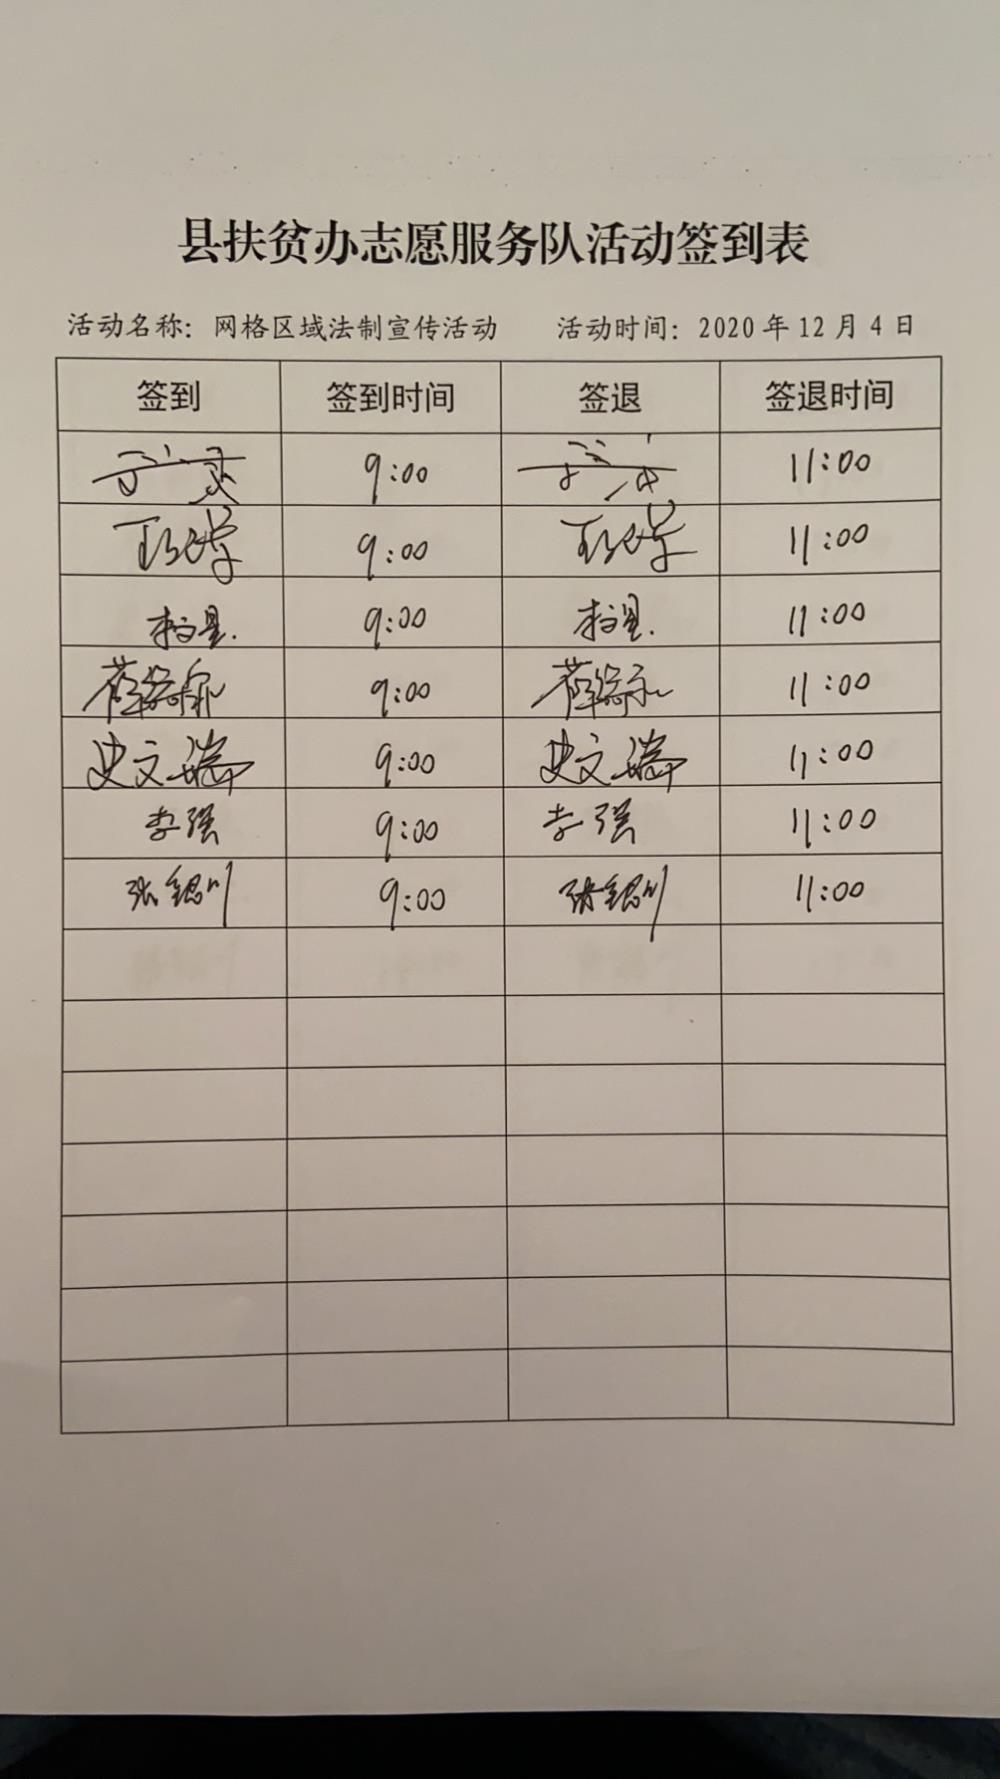 县扶贫办志愿服务队活动签到表
活动名称：网格区域法制宣传活动 活动时间：2020年12月4日
签到 签到时间 签退 签退时间
9:00 11:00
9:00 11:00
9:00 11:00
9:00 11:00
史文瑞 9:00 史文瑞 11:00
李强 9:00 李强 11:00
张银川 9:00 张银川 11:00